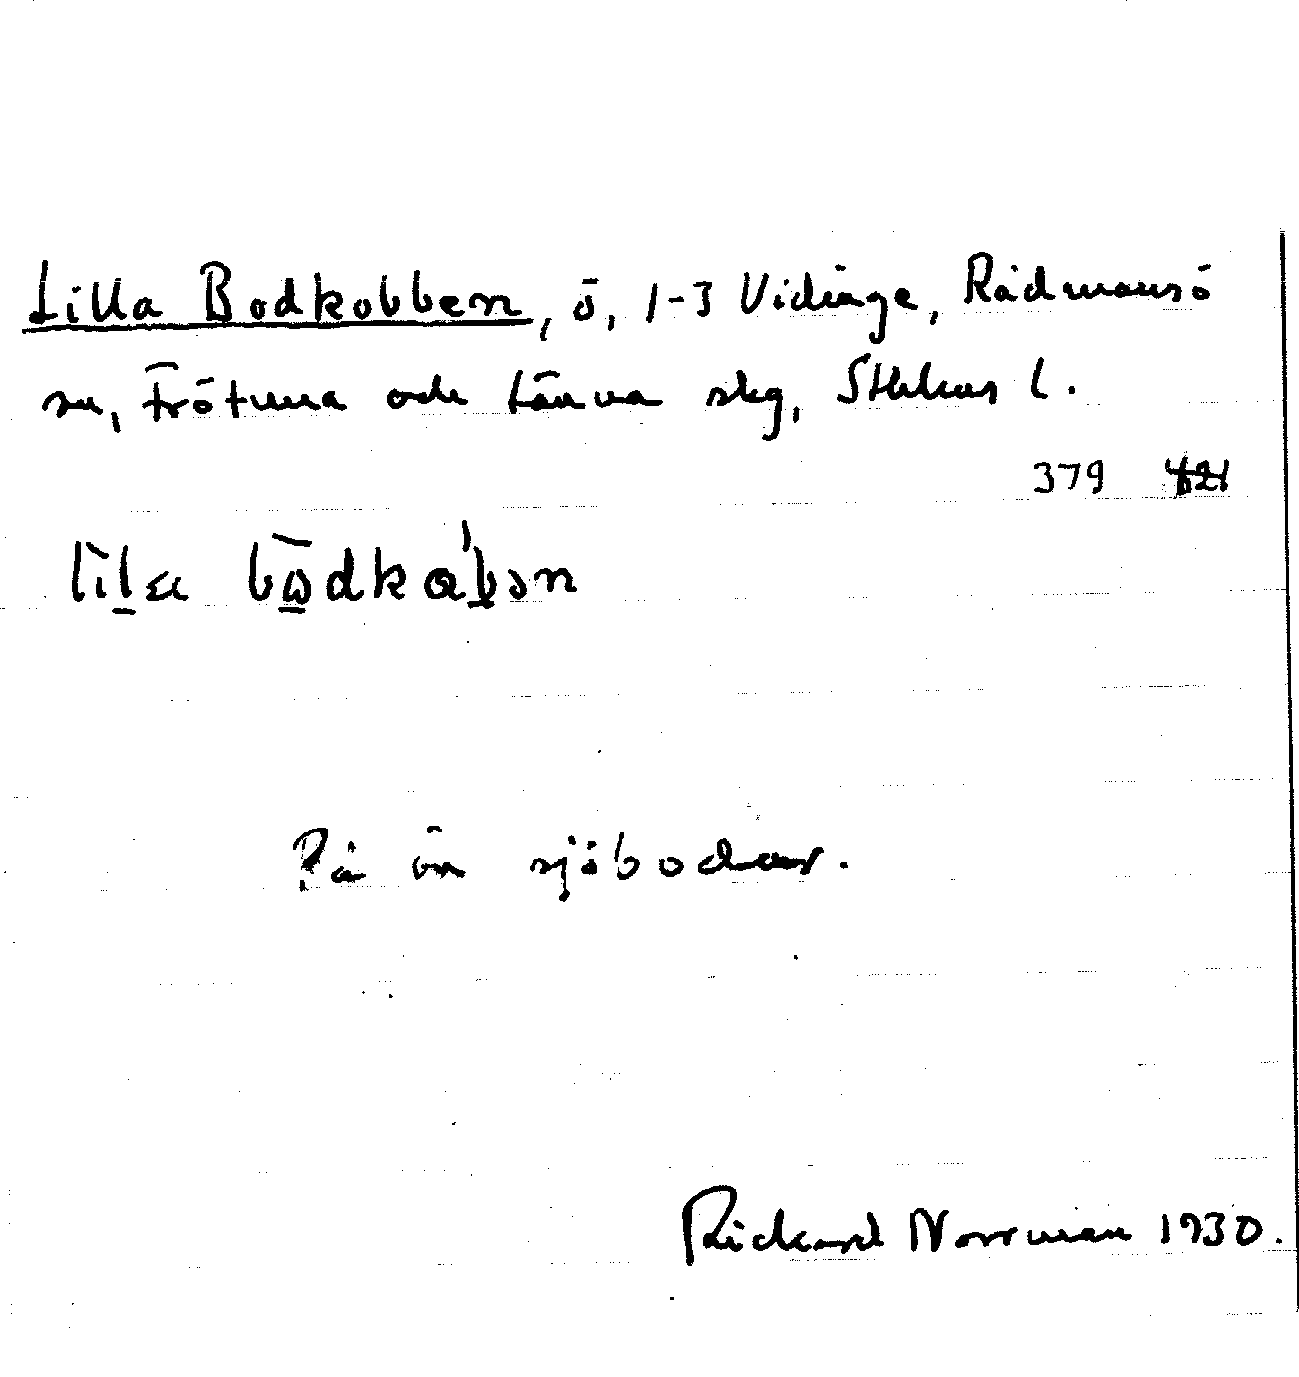 Lilla Bodkobben, ö, 1-3 Vidinge, Rådmansö
sn, Frötuna och Länna skg, Sthlms l.
379 421
lìl̠a bω̠̄dkα'b̠ən
På ön sjöbodar.
Rickard Norrman 1930.